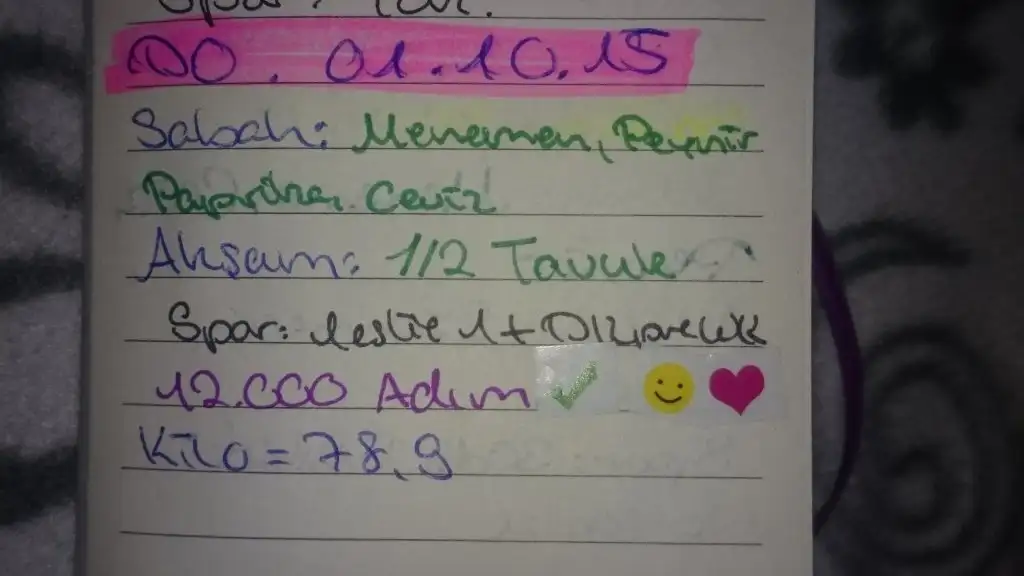 DO. 01.10.15
Sabah: Menemen, Peynir
Ceviz
Akşam: 1/2 Tavuk
Spor: leslie 1 +
12.000 Adım
Kilo = 78,9